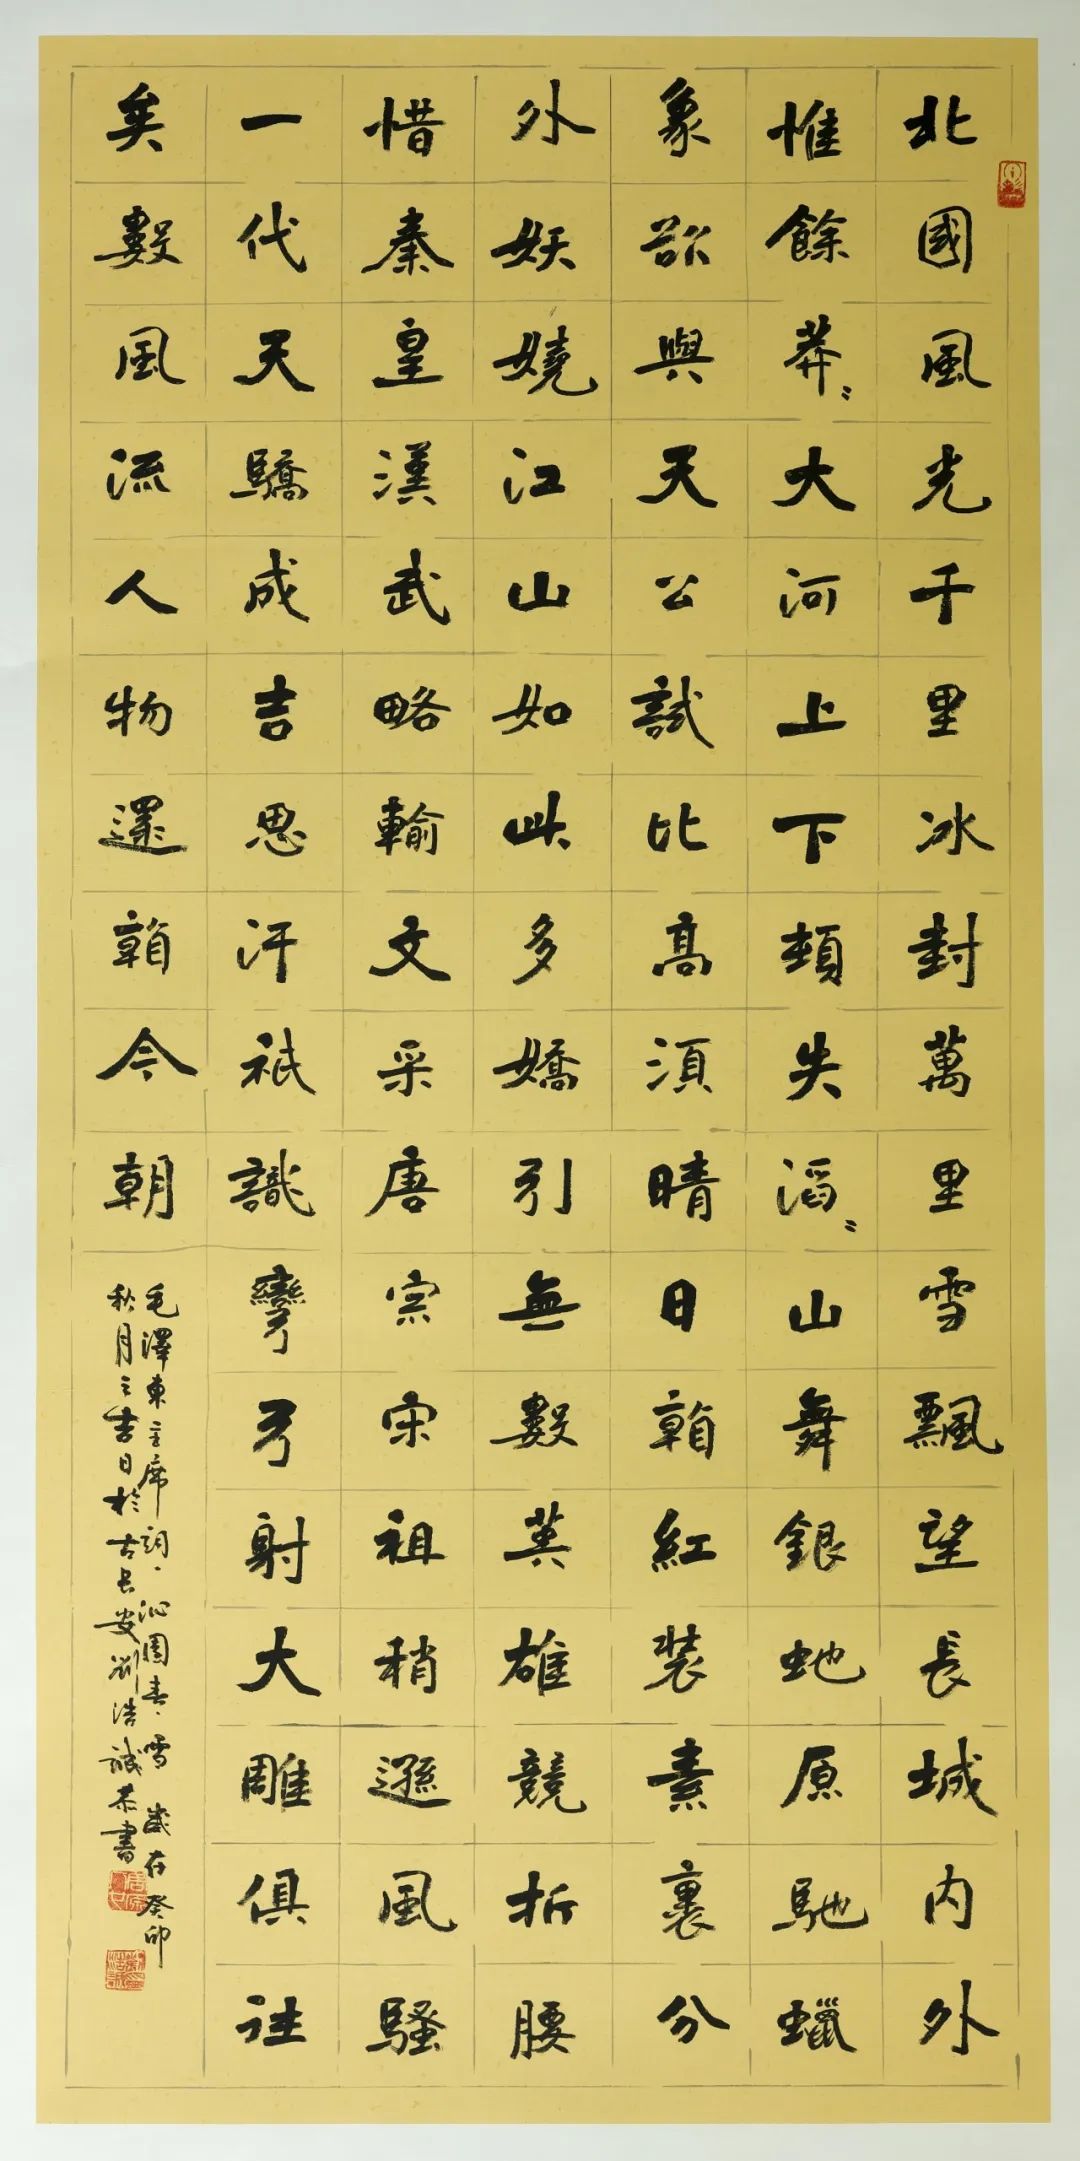 北國風光千里冰封萬里雪飄望長城內外
惟餘莽〻大河上下頓失滔〻山舞銀虵原馳蠟
象欲與天公試比高須晴日看紅裝素裹分
外妖嬈江山如此多嬌引無數英雄競折腰
惜秦皇漢武略輸文采唐宗宋祖稍遜風騷
一代天驕成吉思汗祇識彎弓射大雕俱往
矣數風流人物還看今朝
毛澤東主席詞、沁園春、雪 歲在癸卯
秋月之吉日於古長安劉浩誠恭書